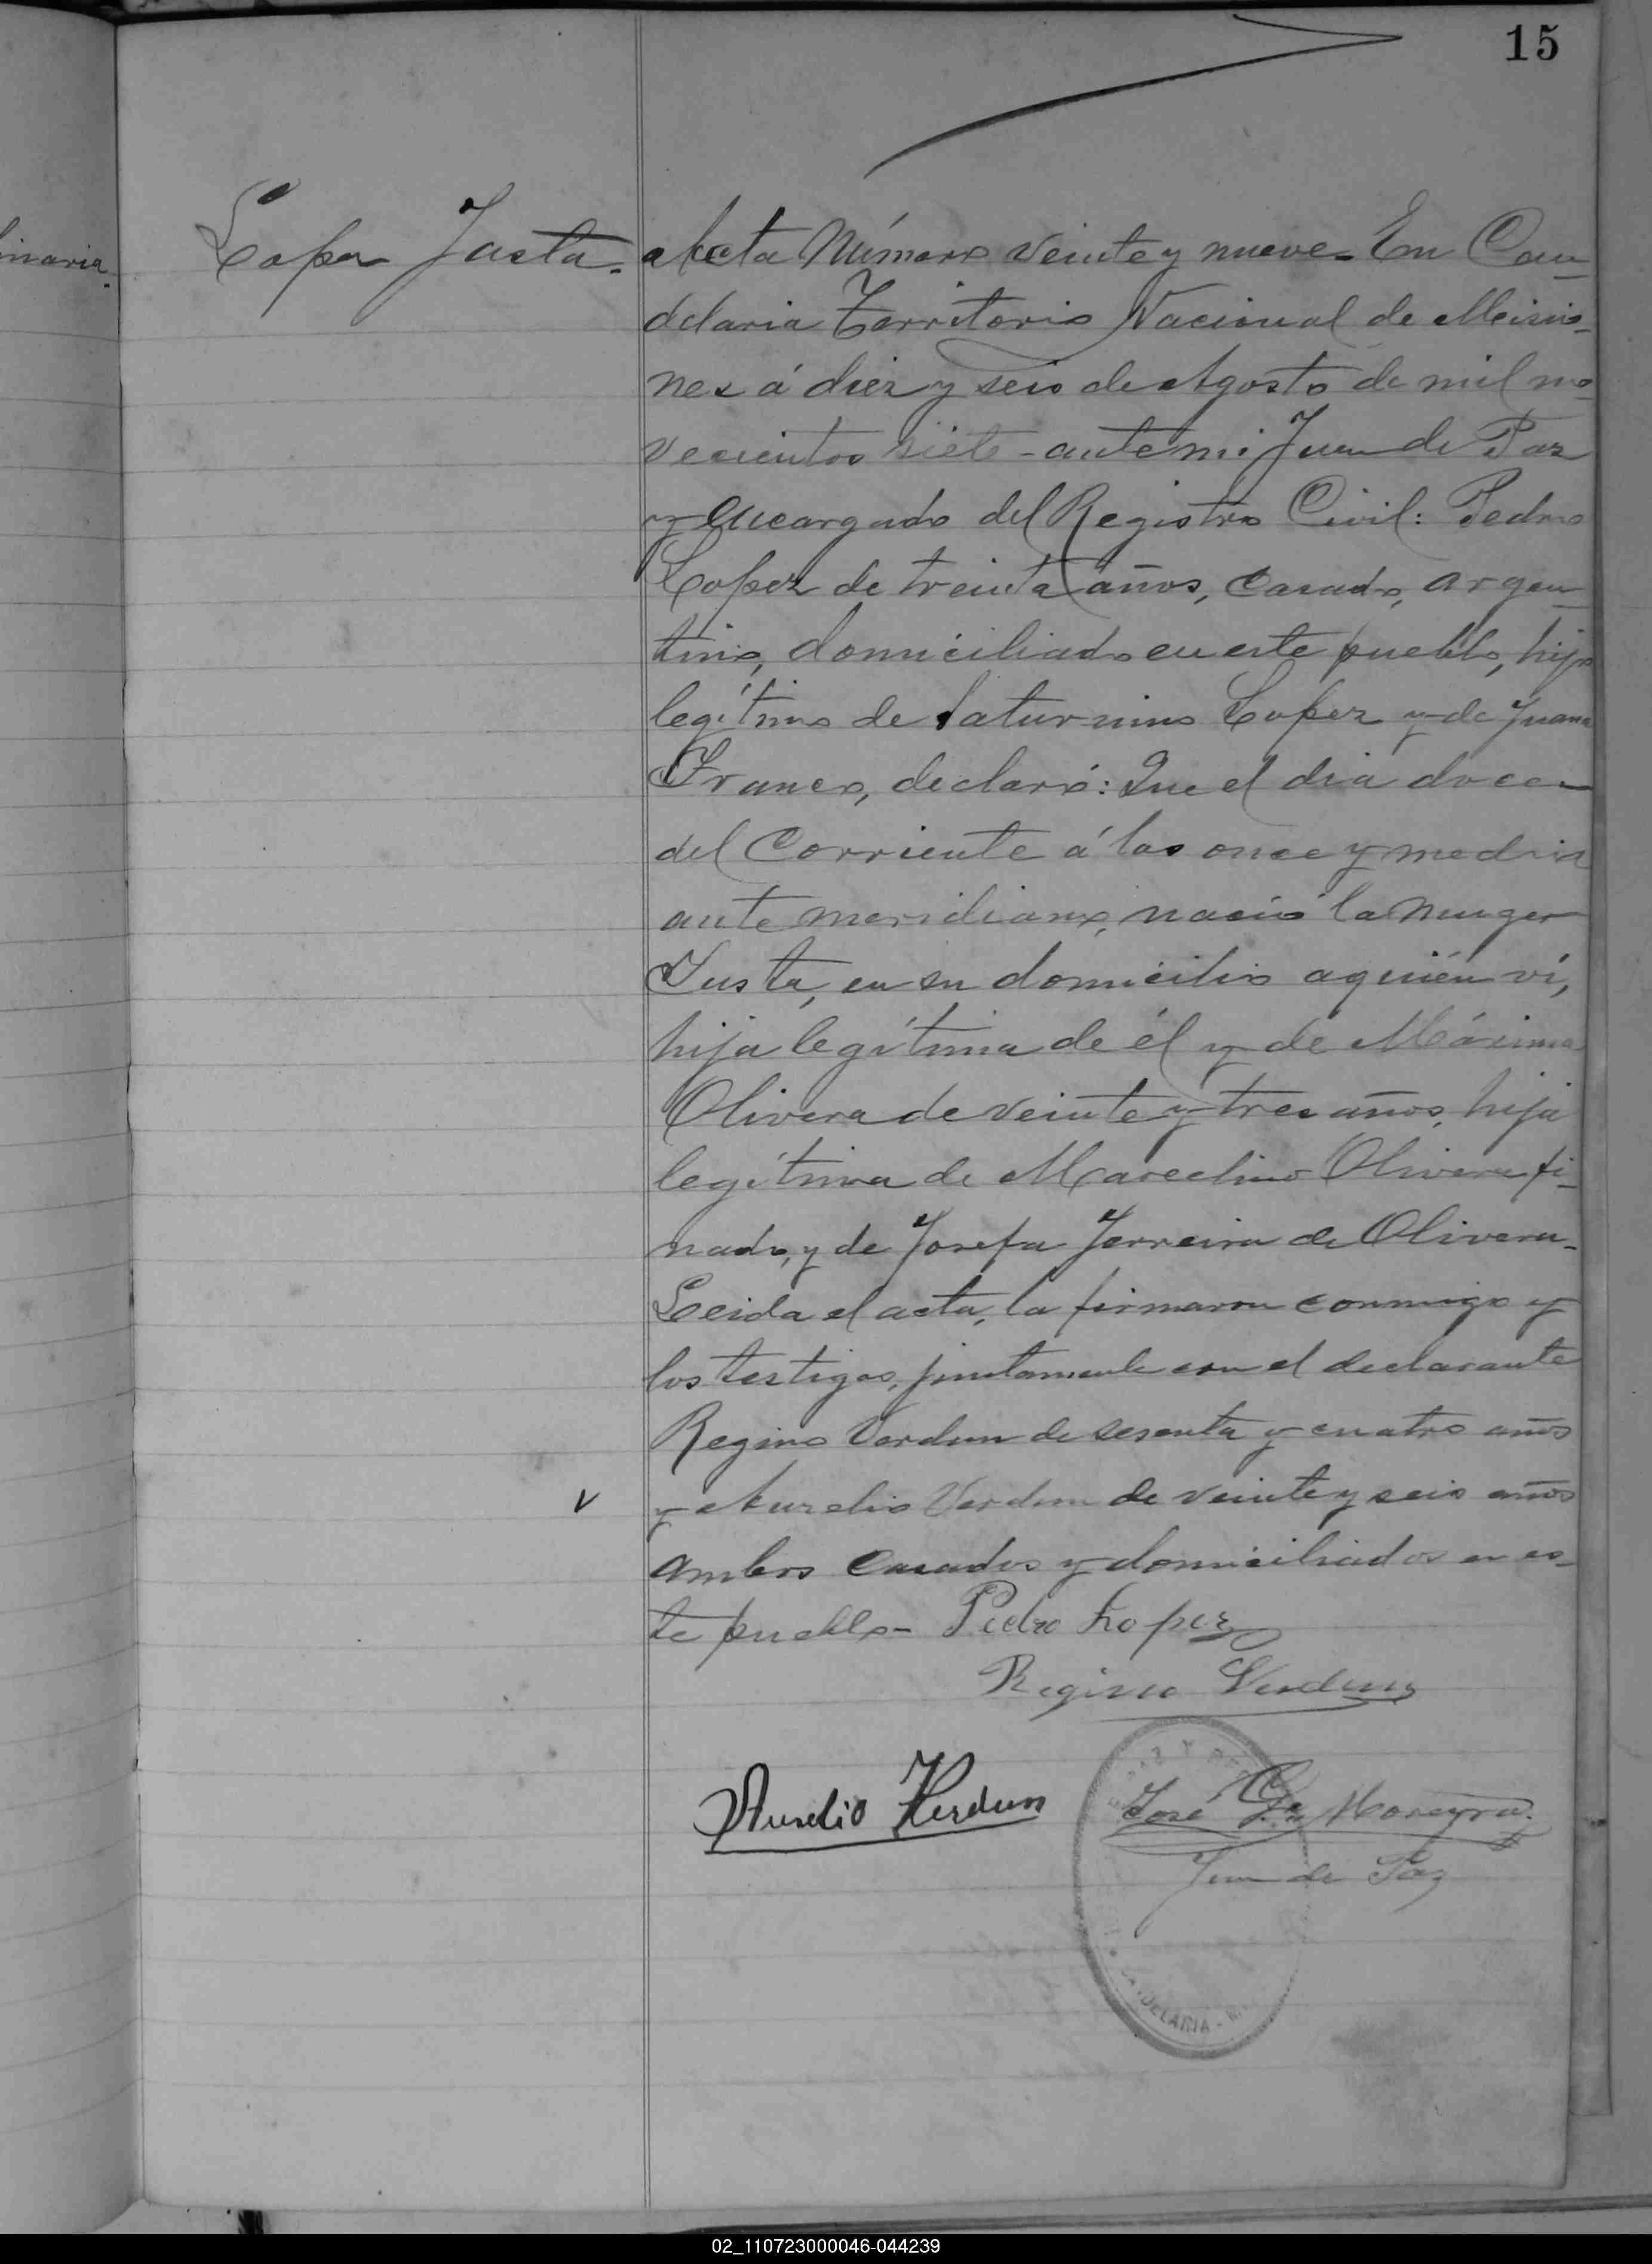 15
inaria.
Lopez Justa.
Acta Número veinte y nueve. En Can-
delaria Territorio Nacional de Misio-
nes á diez y seis de Agosto de mil no-
vecientos siete - ante mi Juez de Paz
y encargado del Registro Civil: Pedro
Lopez de treinta años, casado, argen-
tino, domiciliado en este pueblo, hijo
legítimo de Saturnino Lopez y de Juana
Franco, declaró: Que el dia doce
del corriente á las once y media
ante meridiano, nació la muger
Justa, en su domicilio a quién ví,
hija legítima de él y de Máxima
Olivera de veinte y tres años, hija
legítima de Marcelino Olivera fi-
nado, y de Josefa Ferreira de Olivera-
Leida el acta, la firmaron conmigo y
los testigos, juntamente con el declarante
Regino Verdun de sesenta y cuatro años
v
y Aurelio Verdun de veinte y seis años
ambos casados y domiciliados en es-
te pueblo- Pedro Lopez
Regino Verdun
Aurelio Verdun
José G. Moreyra.
Juez de Paz
CANDELARIA - M
02_110723000046-044239